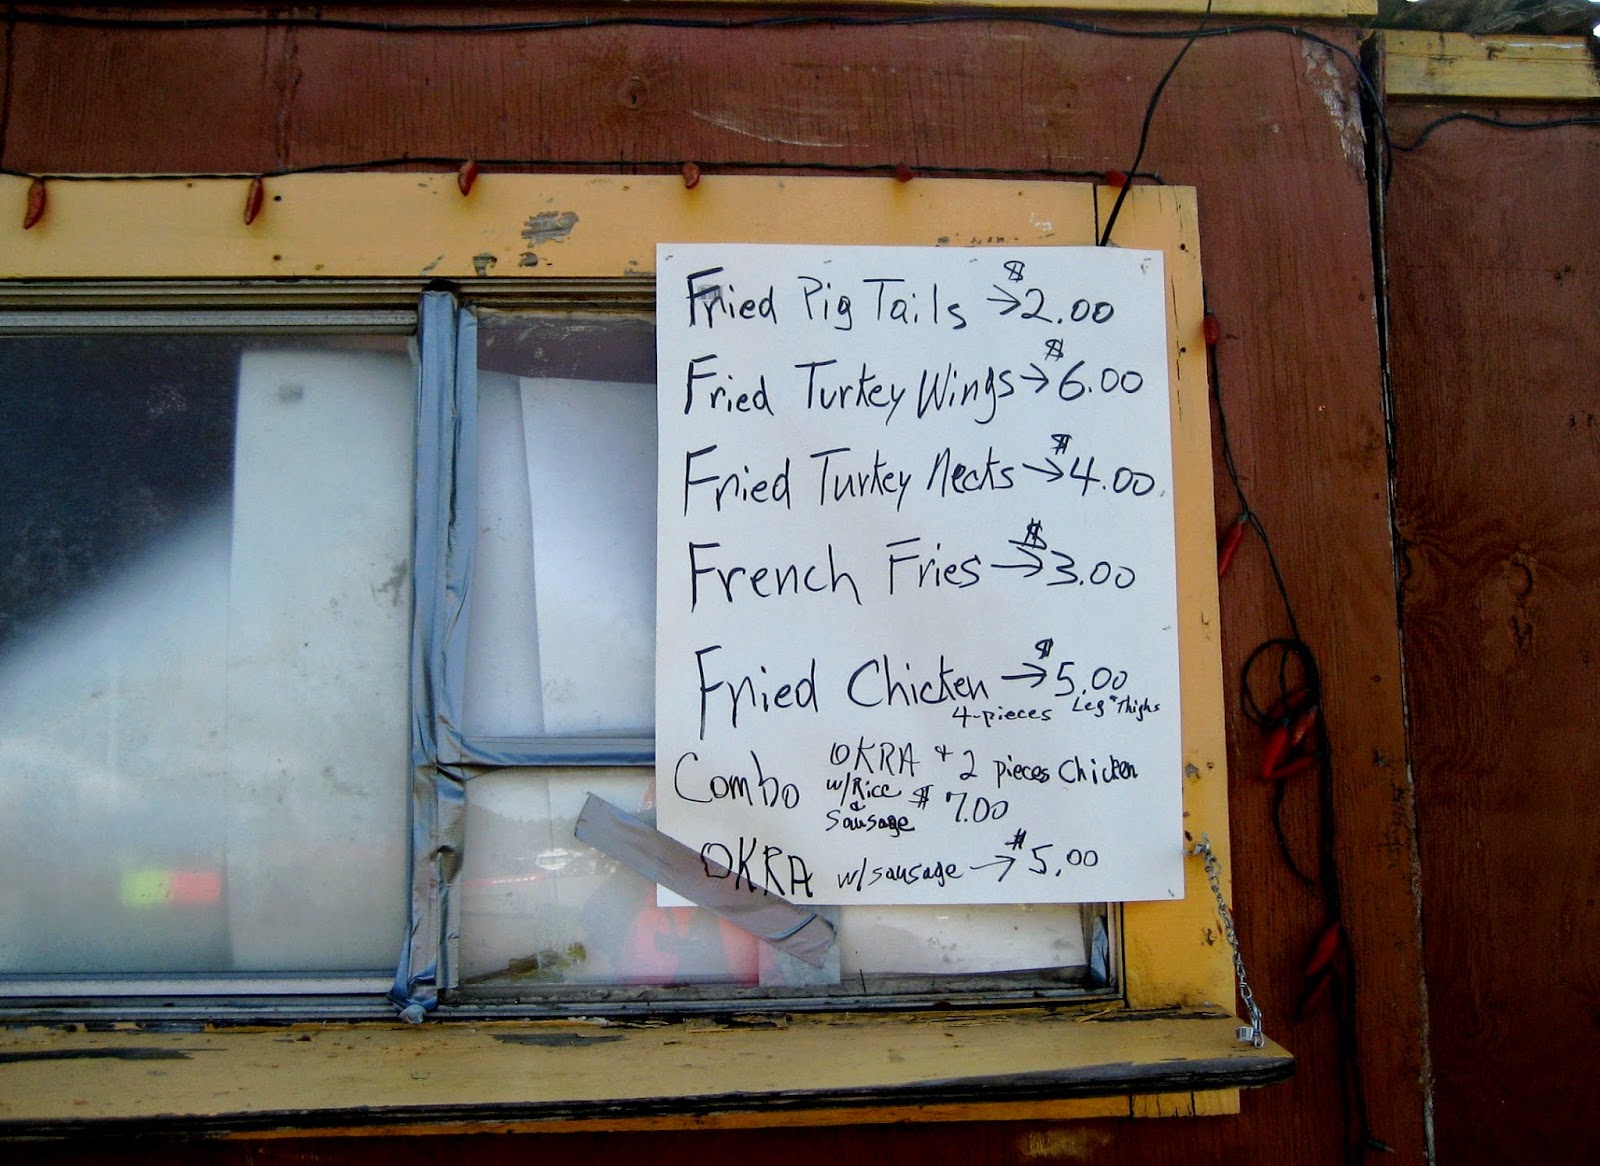 Fried Pig Tails → $2.00
Fried Turkey Wings → $6.00
Fried Turkey Necks → $4.00
French Fries → $3.00
Fried Chicken → $5.00
4-pieces Leg & Thighs
Combo OKRA + 2 pieces Chicken
w/Rice
& Sausage $7.00
OKRA w/sausage → $5.00